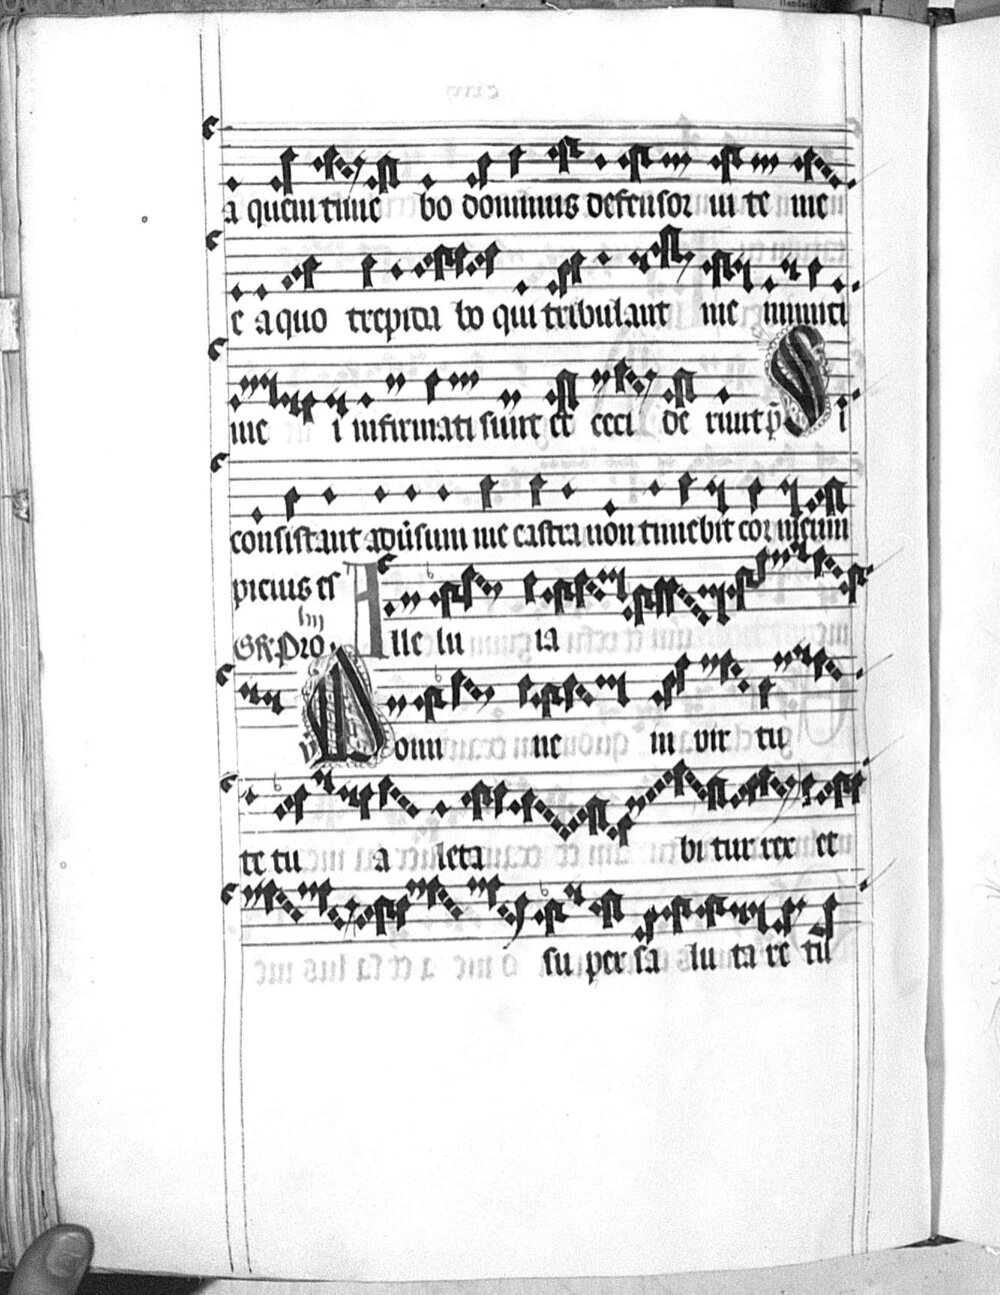 a quem time bo dominus defensor ui te me
e a quo trepida bo qui tribulant me inimici
mei infirmati sunt et ceci de runt p̄s Si
consistant adūsum me castra non timebit cor meum
picius es Alle lu ia
Gr Pro
v Domi ne in vir tu
te tu a leta bi tur rex et
su per sa lu ta re tuū